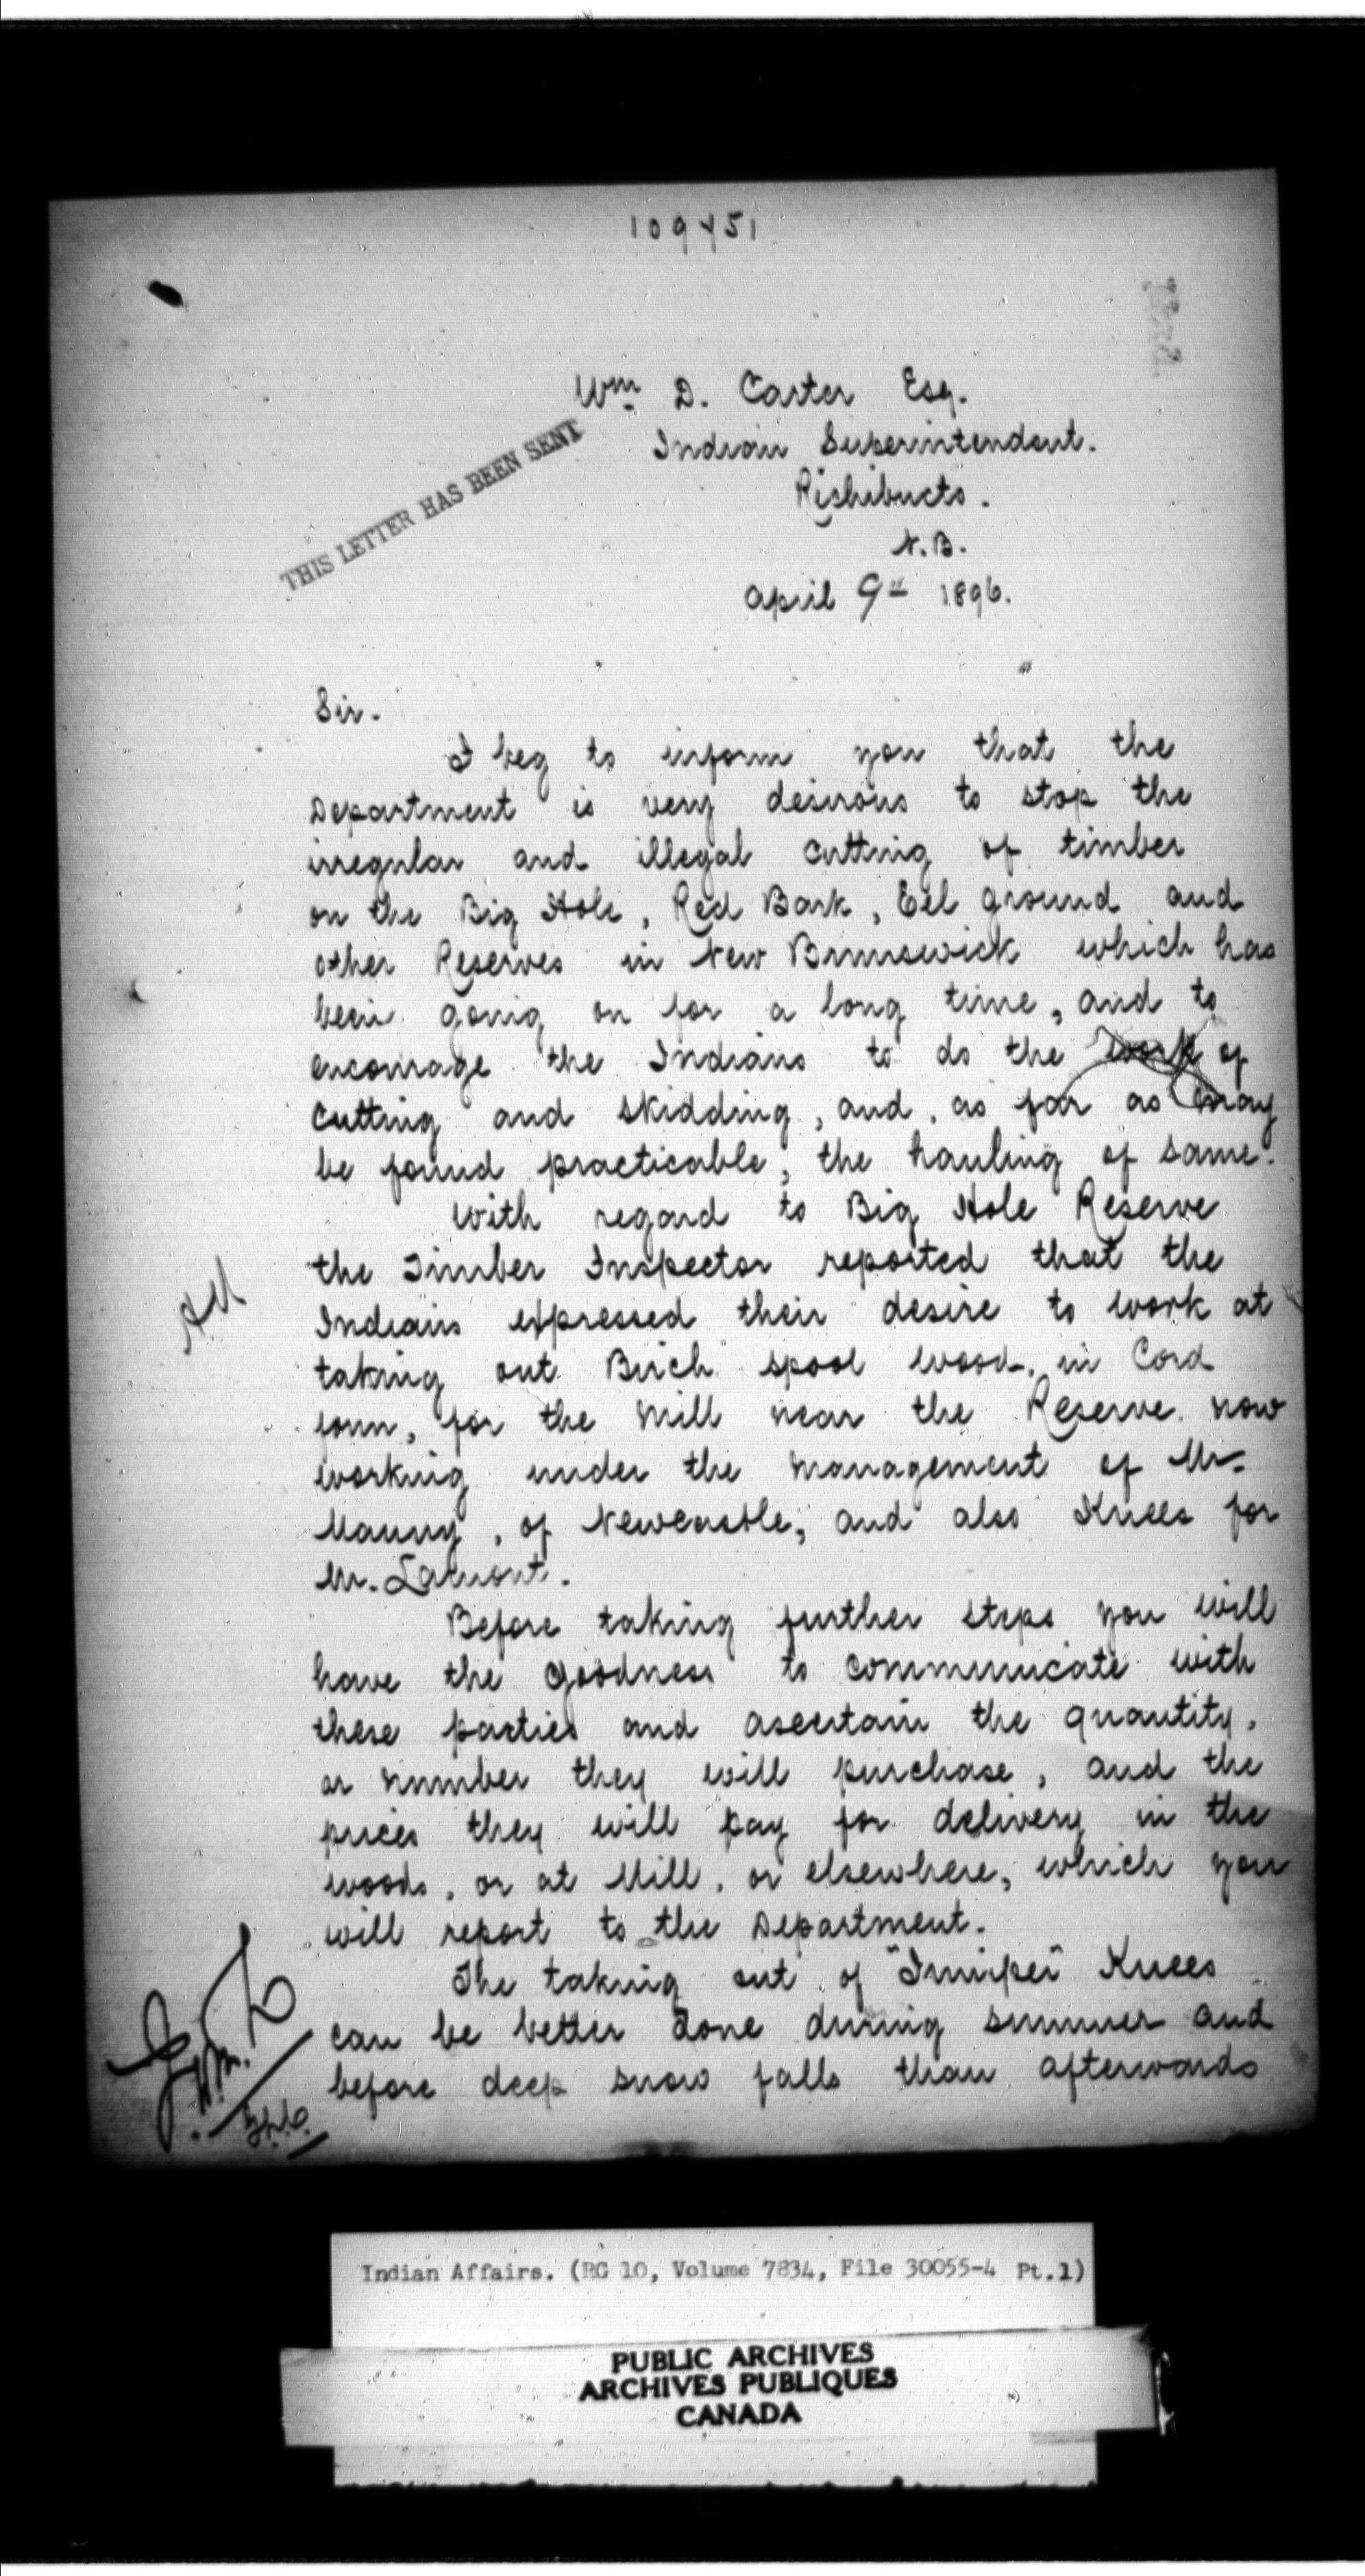 109451
Wm D. Carter Esq.
Indian Superintendent.
Richibucto.
N.B.
THIS LETTER HAS BEEN SENT
April 9th 1896.
Sir.
I beg to inform you that the
Department is very desirous to stop the
irregular and illegal cutting of timber
on the Big Hole, Red Bank, Eel Ground and
other Reserves in New Brunswick which has
been going on for a long time, and to
encourage the Indians to do the work of
cutting and skidding, and, as far as may
be found practicable, the hauling of same.
With regard to Big Hole Reserve
the Timber Inspector reported that the
Indians expressed their desire to work at
taking out Birch spool wood, in Cord
form, for the Mill near the Reserve now
working under the management of Mr.
of Newcastle, and also Knees for
Mr. Lamont.
Before taking further steps you will
have the goodness to communicate with
these parties and ascertain the quantity,
or number they will purchase, and the
prices they will pay for delivery in the
woods, or at Mill, or elsewhere, which you
will report to the Department.
The taking out of "Juniper" Knees
can be better done during summer and
before deep snow falls than afterwards
Indian Affairs. (RG 10, Volume 7834, File 30055-4 Pt.1)
PUBLIC ARCHIVES
ARCHIVES PUBLIQUES
CANADA